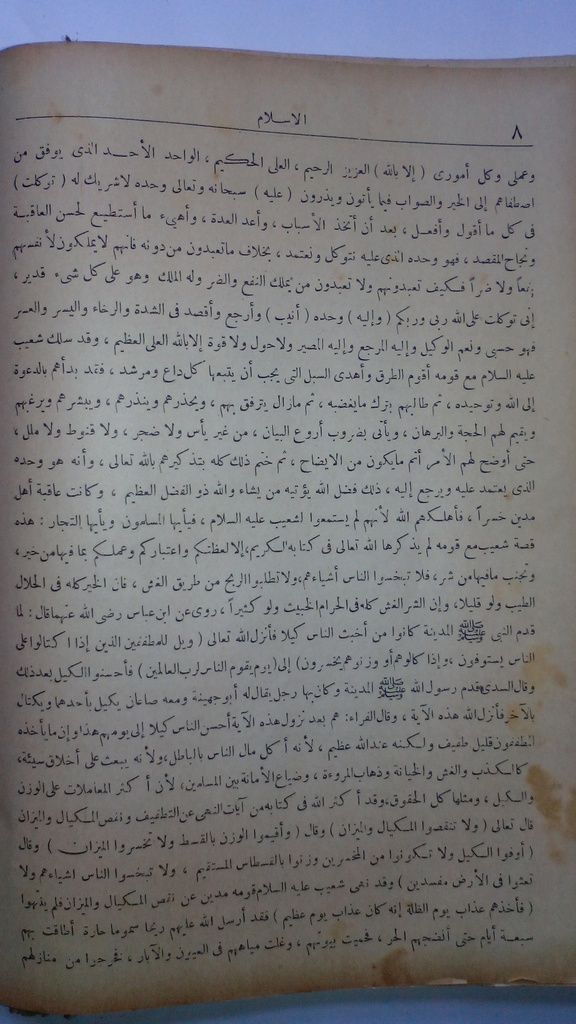 ٨
الاسلام
وعملى وكل أمورى ( إلا بالله ) العزيز الرحيم ، العلى الحكيم ، الواحد الأحد الذى يوفق من
اصطفاهم إلى الخير والصواب فيما يأتون ويذرون ( عليه ) سبحانه وتعالى وحده لاشريك له ( توكلت )
فى كل ما أقول وأفعل ، بعد أن أتخذ الأسباب ، وأعد العدة ، وأهيىء ما أستطيع لحسن العاقبة
ونجاح المقصد ، فهو وحده الذى عليه نتوكل ونعتمد ، بخلاف ماتعبدون من دونه فانهم لايملكون لأنفسهم
نفعا ولا ضرا فكيف تعبدونهم ولا تعبدون من يملك النفع والضر وله الملك وهو على كل شىء قدير ،
إنى توكلت على الله ربى وربكم ( وإليه ) وحده ( أنيب ) وأرجع وأقصد فى الشدة والرخاء واليسر والعسر
فهو حسبى ونعم الوكيل وإليه المرجع وإليه المصير ولاحول ولا قوة إلا بالله العلى العظيم ، وقد سلك شعيب
عليه السلام مع قومه أقوم الطرق وأهدى السبل التى يجب أن يتبعها كل داع ومرشد ، فقد بدأهم بالدعوة
إلى الله وتوحيده ، ثم طالبهم بترك مايغضبه ، ثم مازال يترفق بهم ، ويحذرهم وينذرهم ، ويبشرهم ويرغبهم
ويقيم لهم الحجة والبرهان ، ويأتى بضروب أروع البيان ، من غير يأس ولا ضجر ، ولا قنوط ولا ملل ،
حتى أوضح لهم الأمر أتم مايكون من الايضاح ، ثم ختم ذلك كله بتذكيرهم بالله تعالى ، وأنه هو وحده
الذى يعتمد عليه ويرجع إليه ، ذلك فضل الله يؤتيه من يشاء والله ذو الفضل العظيم ، وكانت عاقبة أهل
مدين خسرا ، فأهلكهم الله لأنهم لم يستمعوا لشعيب عليه السلام ، فيأيها المسلمون ويأيها التجار : هذه
قصة شعيب مع قومه لم يذكرها الله تعالى فى كتابه الكريم ، إلا لعظتكم واعتباركم وعملكم بما فيها من خير ،
وتجنب مافيها من شر ، فلا تبخسوا الناس أشياءهم ، ولا تطلبوا الربح من طريق الغش ، فان الخير كله فى الحلال
الطيب ولو قليلا ، وإن الشر الغش كله فى الحرام الخبيث ولو كثيرا ، روى عن ابن عباس رضى الله عنهما قال : لما
قدم النبى ﷺ المدينة كانوا من أخبث الناس كيلا فأنزل الله تعالى ( ويل للمطففين الذين إذا اكتالوا على
الناس يستوفون ، وإذا كالوهم أو وزنوهم يخسرون ) إلى ( يوم يقوم الناس لرب العالمين ) فأحسنوا الكيل بعد ذلك
وقال السدى قدم رسول الله ﷺ المدينة وكان بها رجل يقال له أبو جهينة ومعه صاعان يكيل بأحدهما ويكتال
بالآخر فأنزل الله هذه الآية ، وقال الفراء : هم بعد نزول هذه الآية أحسن الناس كيلا إلى يومهم هذا وإن ما يأخذه
المطففون قليل طفيف ولكنه عند الله عظيم ، لأنه أكل مال الناس بالباطل ، ولأنه يبعث على أخلاق سيئة ،
كالكذب والغش والخيانة وذهاب المروءة ، وضياع الأمانة بين المسلمين ، لأن أكثر المعاملات على الوزن
والكيل ، ومثلها كل الحقوق ، وقد أكثر الله فى كتابه من آيات النهى عن التطفيف ونقص المكيال والميزان
قال تعالى ( ولا تنقصوا المكيال والميزان ) وقال ( وأقيموا الوزن بالقسط ولا تخسروا الميزان ) وقال
( أوفوا الكيل ولا تكونوا من المخسرين وزنوا بالقسطاس المستقيم ، ولا تبخسوا الناس اشياءهم ولا
تعثوا فى الأرض مفسدين ) وقد نهى شعيب عليه السلام قومه مدين عن نقص المكيال والميزان فلم ينتهوا
( فأخذهم عذاب يوم الظلة إنه كان عذاب يوم عظيم ) فقد أرسل الله عليهم ريحا سموما حارة أطافت بهم
سبعة أيام حتى أنضجهم الحر ، فحميت بيوتهم ، وغلت مياههم فى العيون والآبار ، فخرجوا من منازلهم